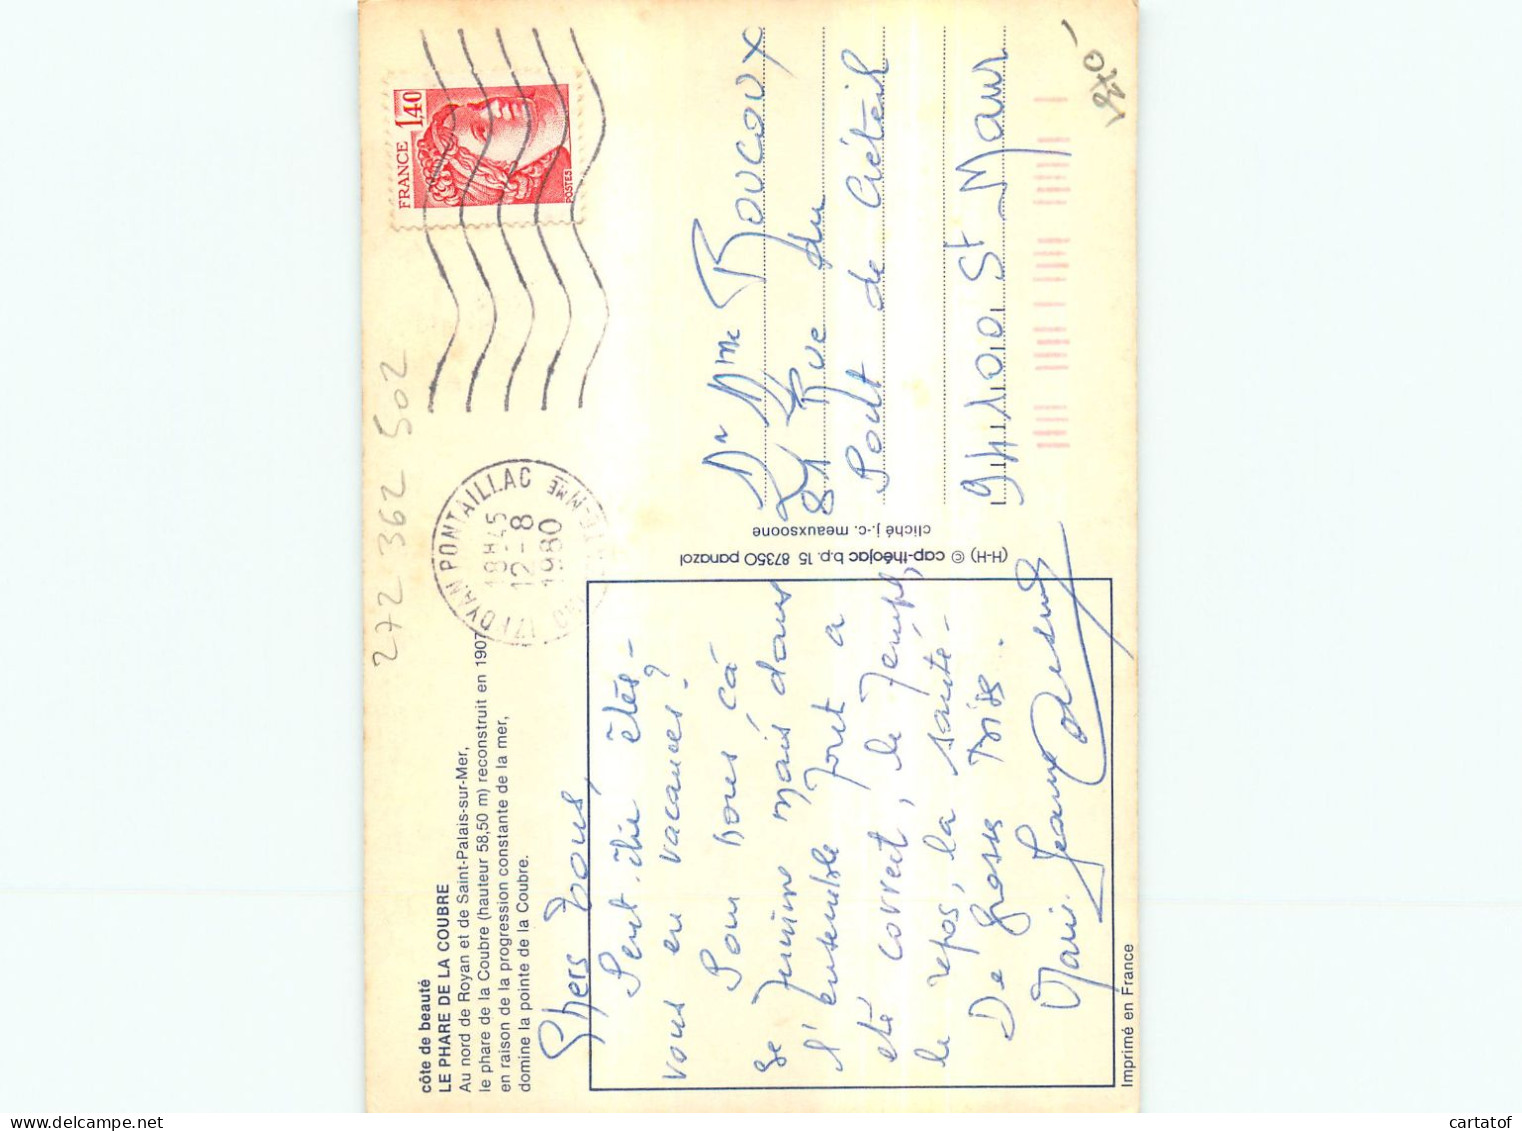 côte de beauté
LE PHARE DE LA COUBRE
Au nord de Royan et de Saint-Palais-sur-Mer,
le phare de la Coubre (hauteur 58,50 m) reconstruit en 1907
en raison de la progression constante de la mer,
domine la pointe de la Coubre.
272 362 502
FRANCE 1,40
POSTES
17 ROYAN PONTAILLAC
18H45
12-8
1980
Chers Tous,
Peut-être êtes-
vous en vacances?
Pour nous ça
se termine mais dans
l'ensemble tout a
été correct, le temps,
le repos, la santé-
De grosses bises.
Marie Jeanne
(H-H) © cap-théojac b.p. 15 87350 panazol
cliché j.-c. meauxsoone
Dr Mme BOUCOUX
81 Rue du
Pont de Créteil
94100 St Maur
Imprimé en France
cartatof